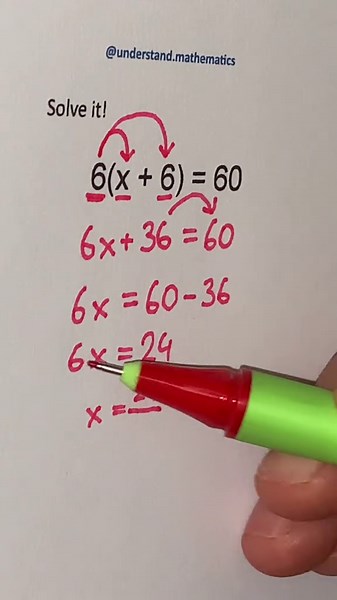 @understand.mathematics
Solve it!
6(x + 6) = 60
6x+36 = 60
6x = 60-36
6x = 24
x =